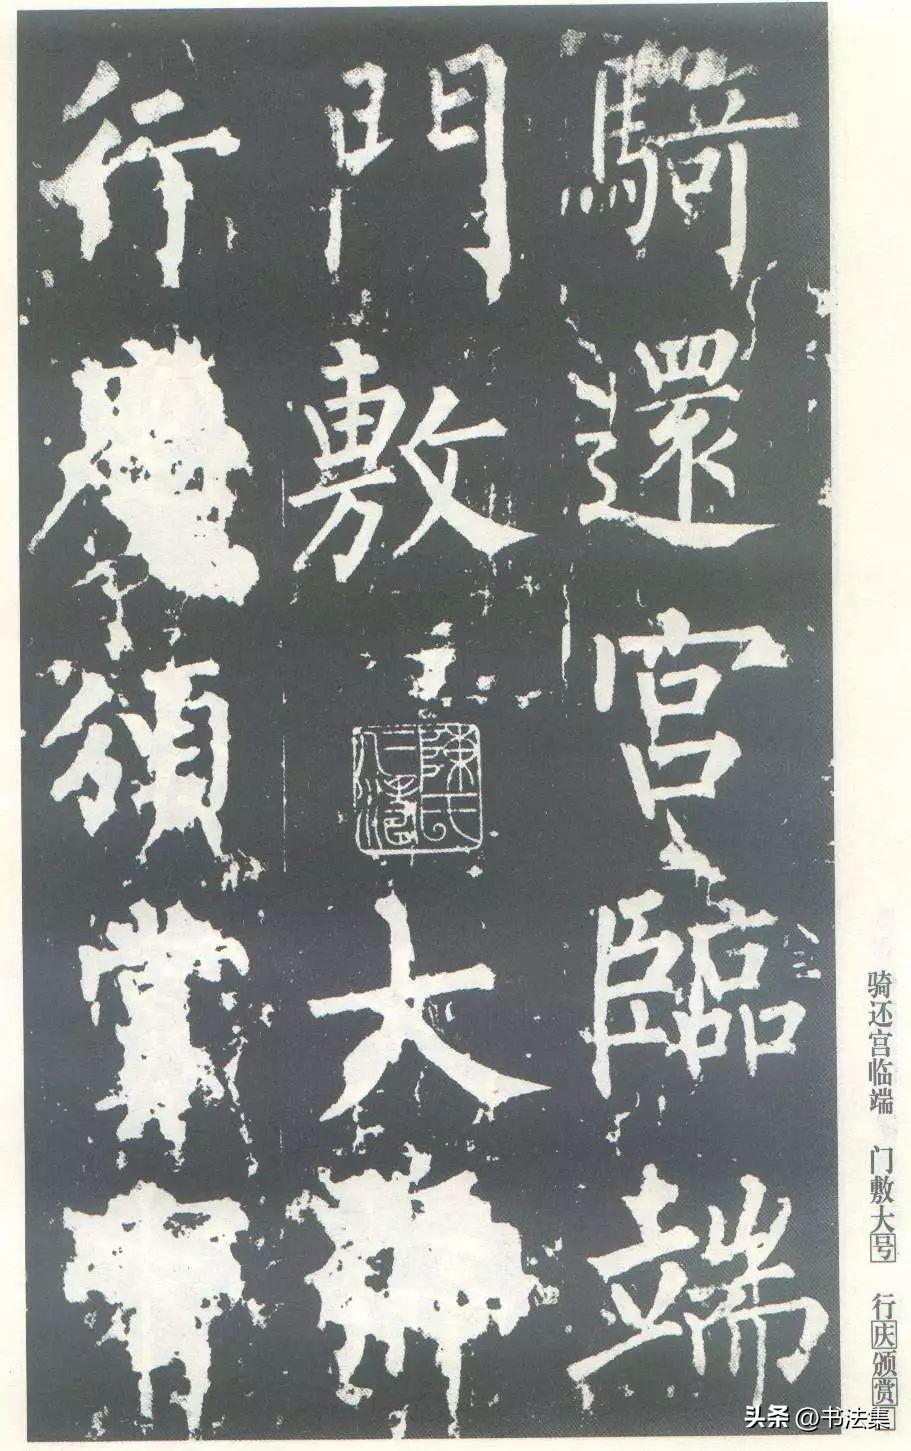 騎還宮臨端
門敷大
行頒賞
陳氏
骑还宫临端 门敷大号 行庆颁赏
头条 @书法集